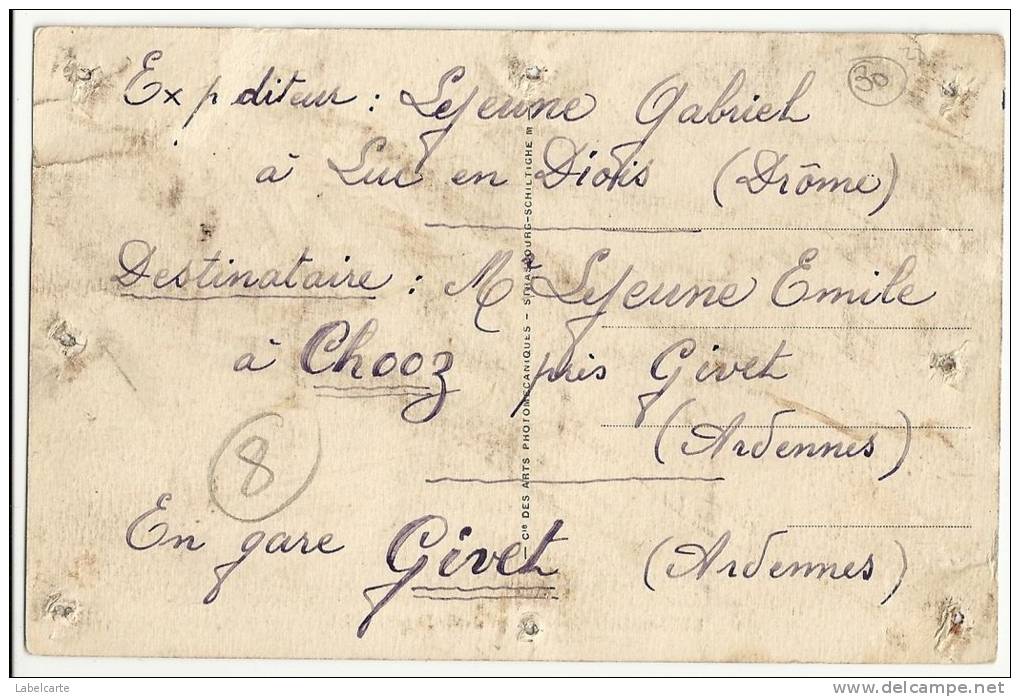 Expditeur : Lejeune Gabriel
à Luc en Diois (Drôme)
Destinataire : Mr Lejeune Emile
à Chooz près Givet
(Ardennes)
En gare Givet (Ardennes)
30
8
— Cie DES ARTS PHOTOMECANIQUES - STRASBOURG-SCHILTIGHEIM
Labelcarte
www.delcampe.net